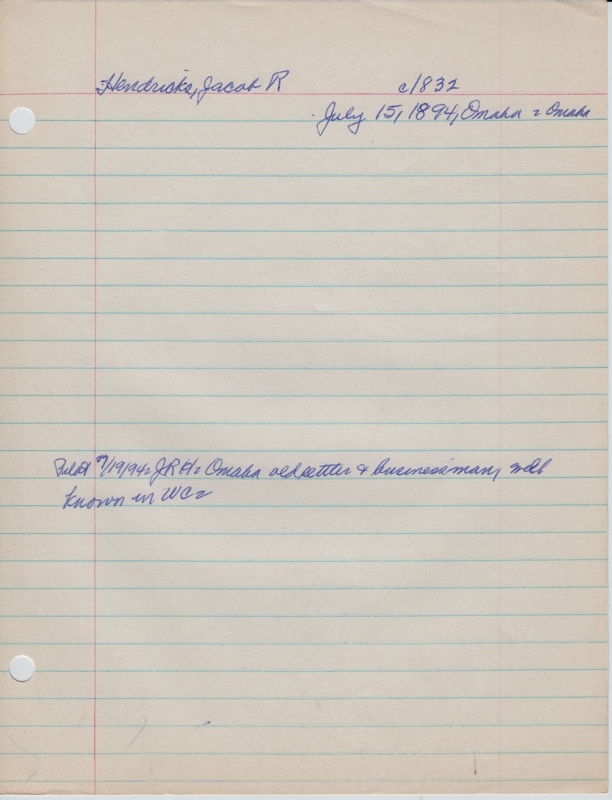 Hendricks, Jacob R c/832
July 15, 1894, Omaha = Omaha
Pilot 7/19/94= JRH= Omaha old settler & businessman, well
known in WC=